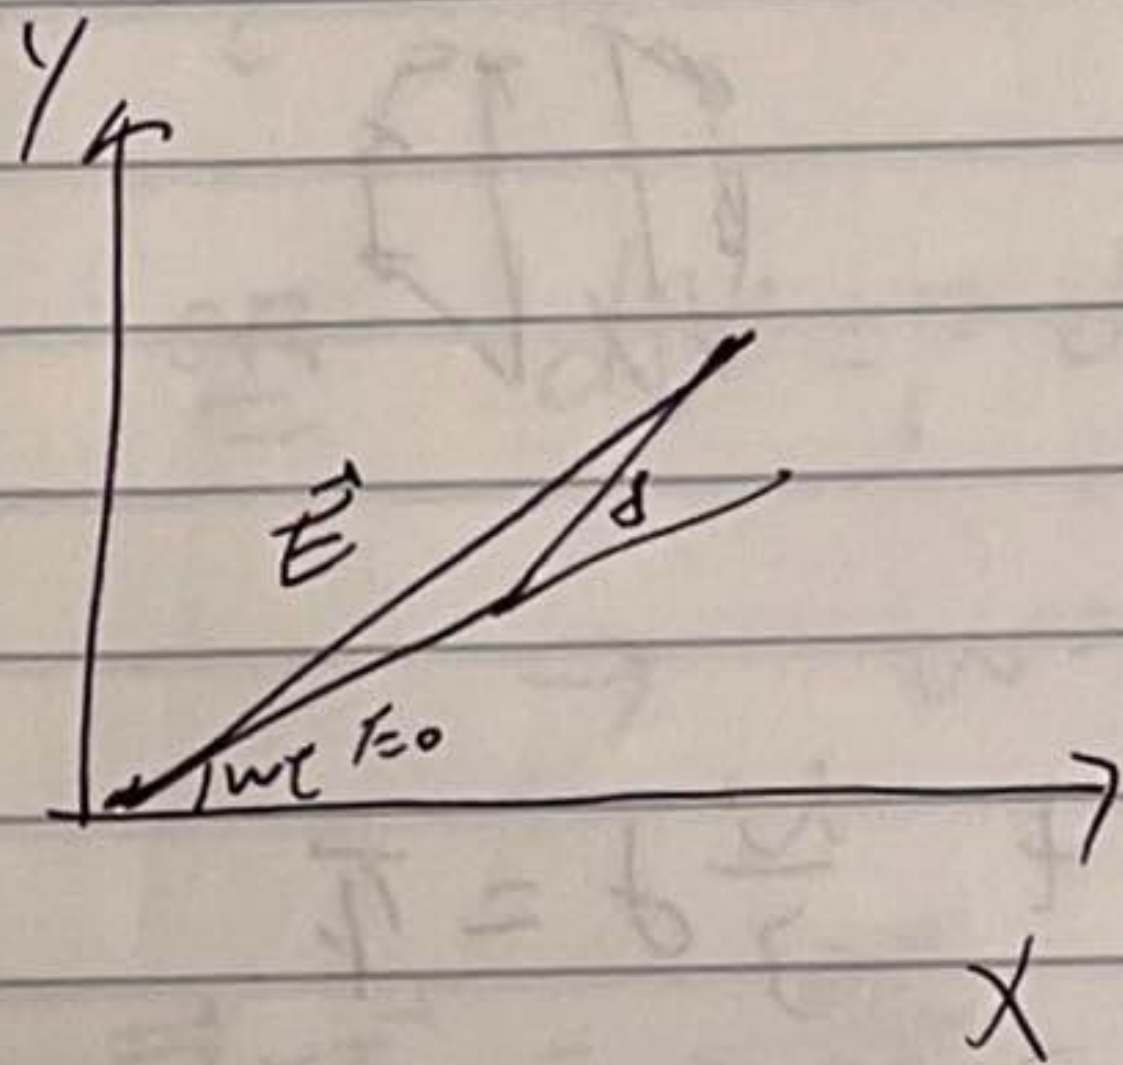 Y
E⃗
δ
wt t=0
X